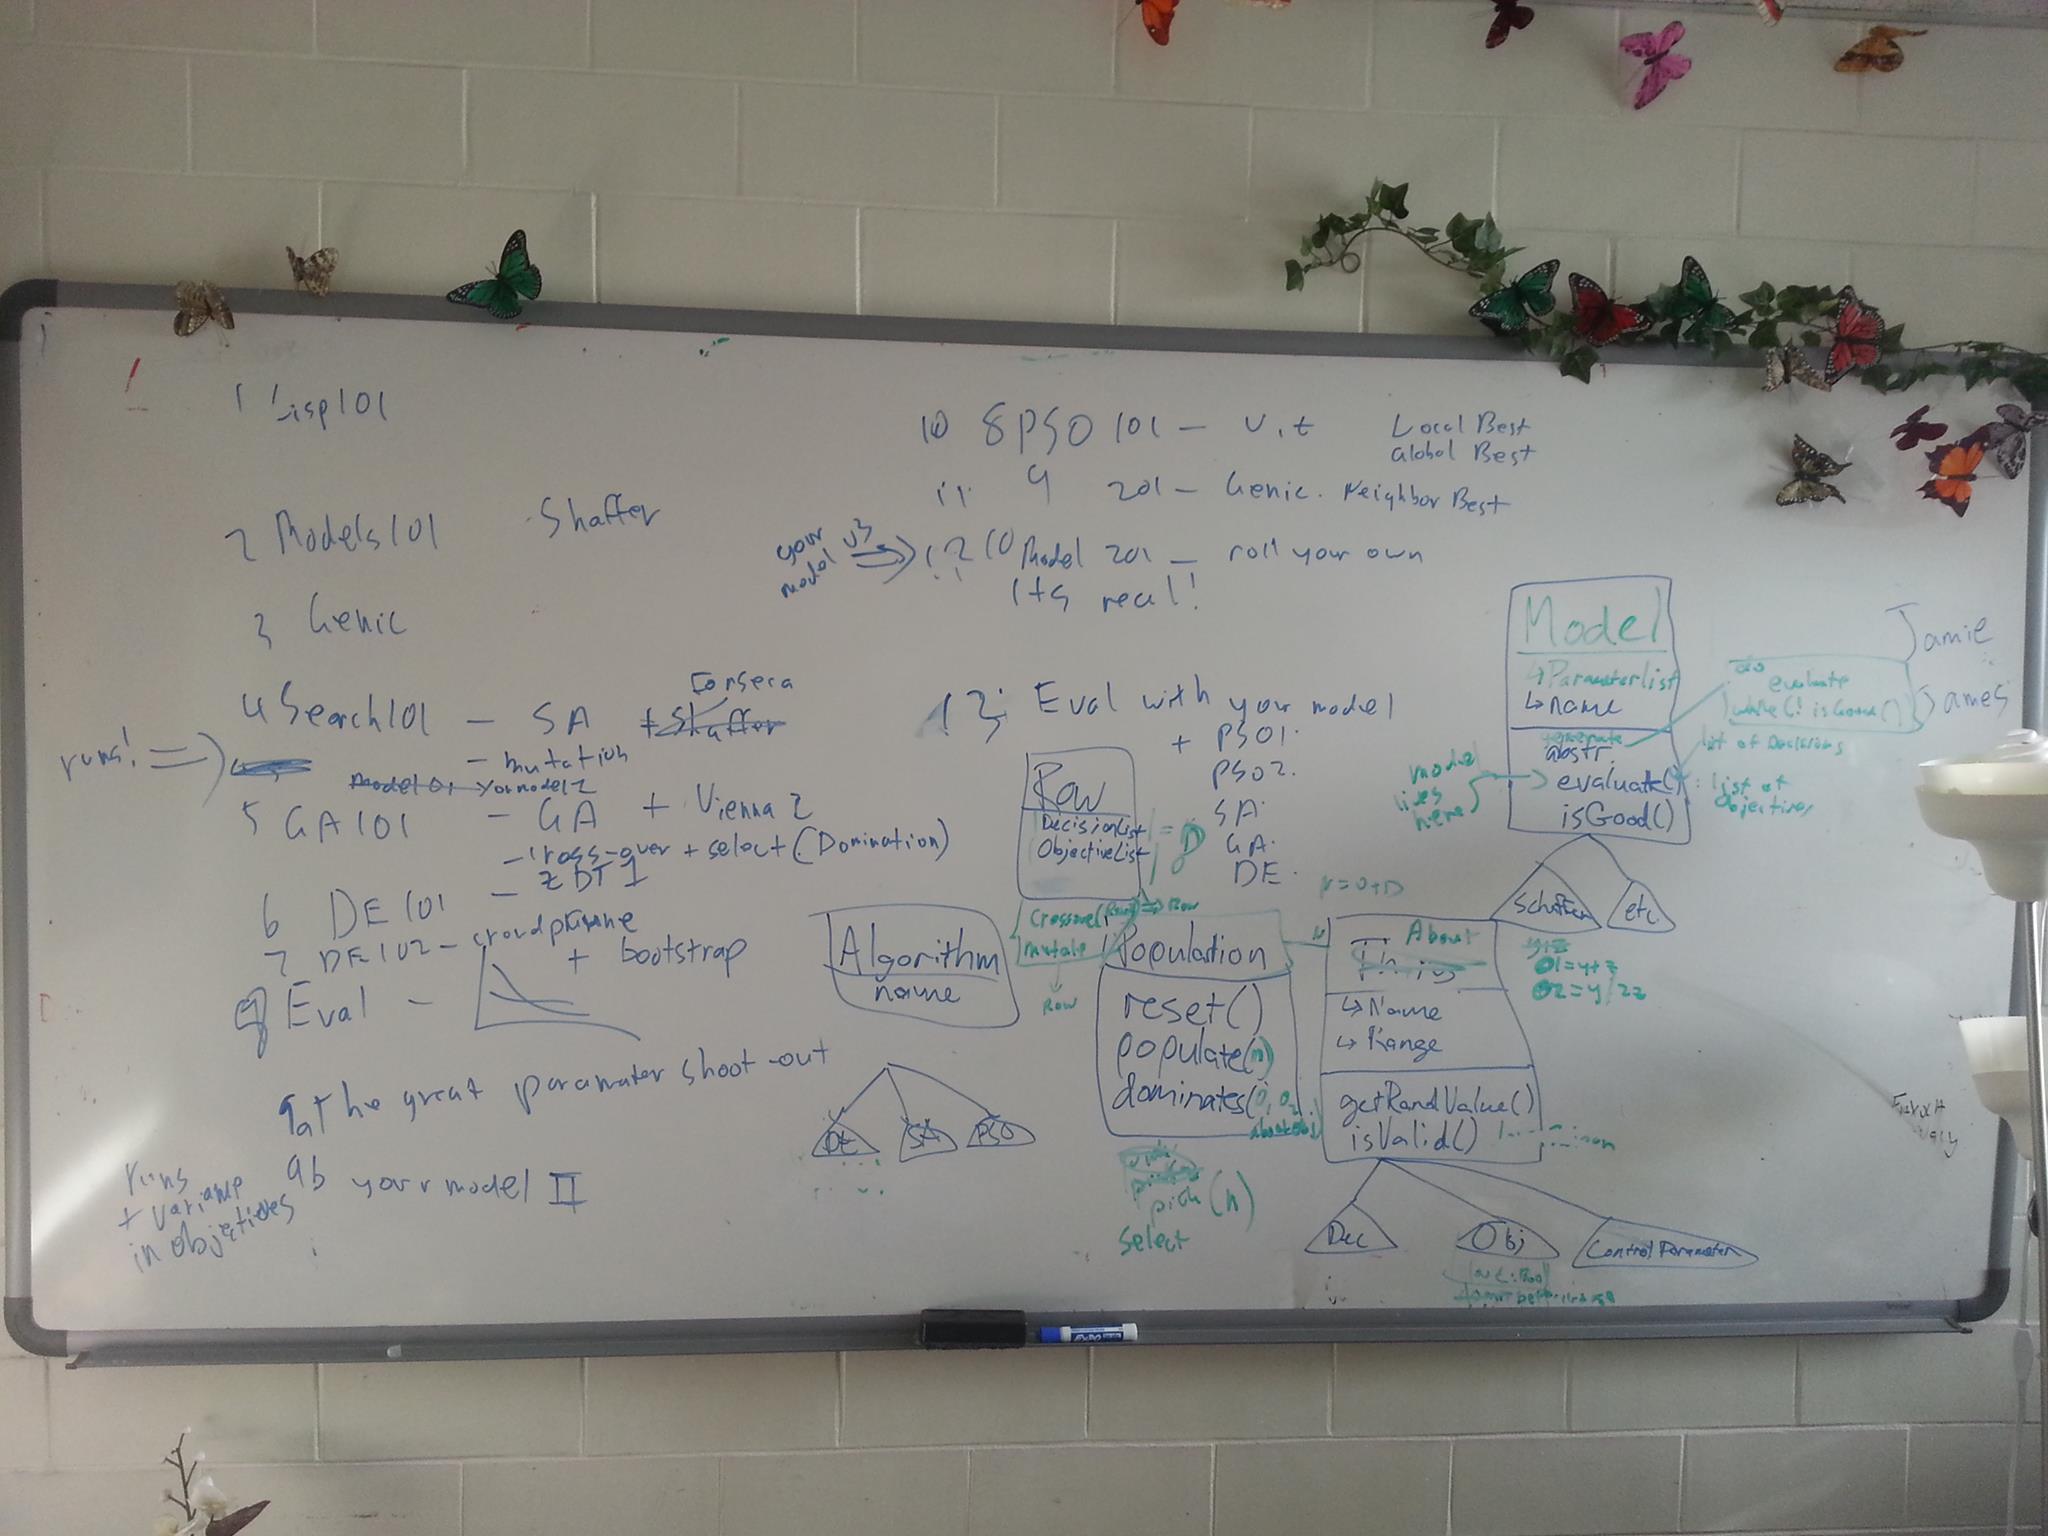 1 Lisp101
2 Models101 Shaffer
3 Genic
Fonseca
4 Search101 - SA + Shaffer
runs! =>
- mutation
Model 01 Yourmodel2
5 GA101 - GA + Vienna 2
- cross-over + select (Domination)
6 DE101 - ZDT1
7 DE102 - + bootstrap
Eval -
9a the great parameter shoot-out
9b your model II
runs
+ variance
in objectives
10 8 PSO 101 - v.t Local Best
Global Best
11 9 201 - Genic. Neighbor Best
your
model v3 => 12 10 Model 201 - roll your own
Its real!
13 Eval with your model
+ PSO1
PSO2
SA
GA
DE
Row
DecisionList
ObjectiveList
Algorithm
name
DE SA PSO
mutate
Row
Population
reset()
populate(n)
dominates(
pick(n)
select
About
Things
↳ Name
↳ Range
getRandValue()
isValid()
Dec Obj Control Parameter
Model
↳ ParameterList
↳ name
generate
abstr.
evaluate()
isGood()
model
lives
here
Schaffer etc.
do
evaluate
while(! isGood())
list of Decisions
: list of
objectives
Jamie
James
01=y+z